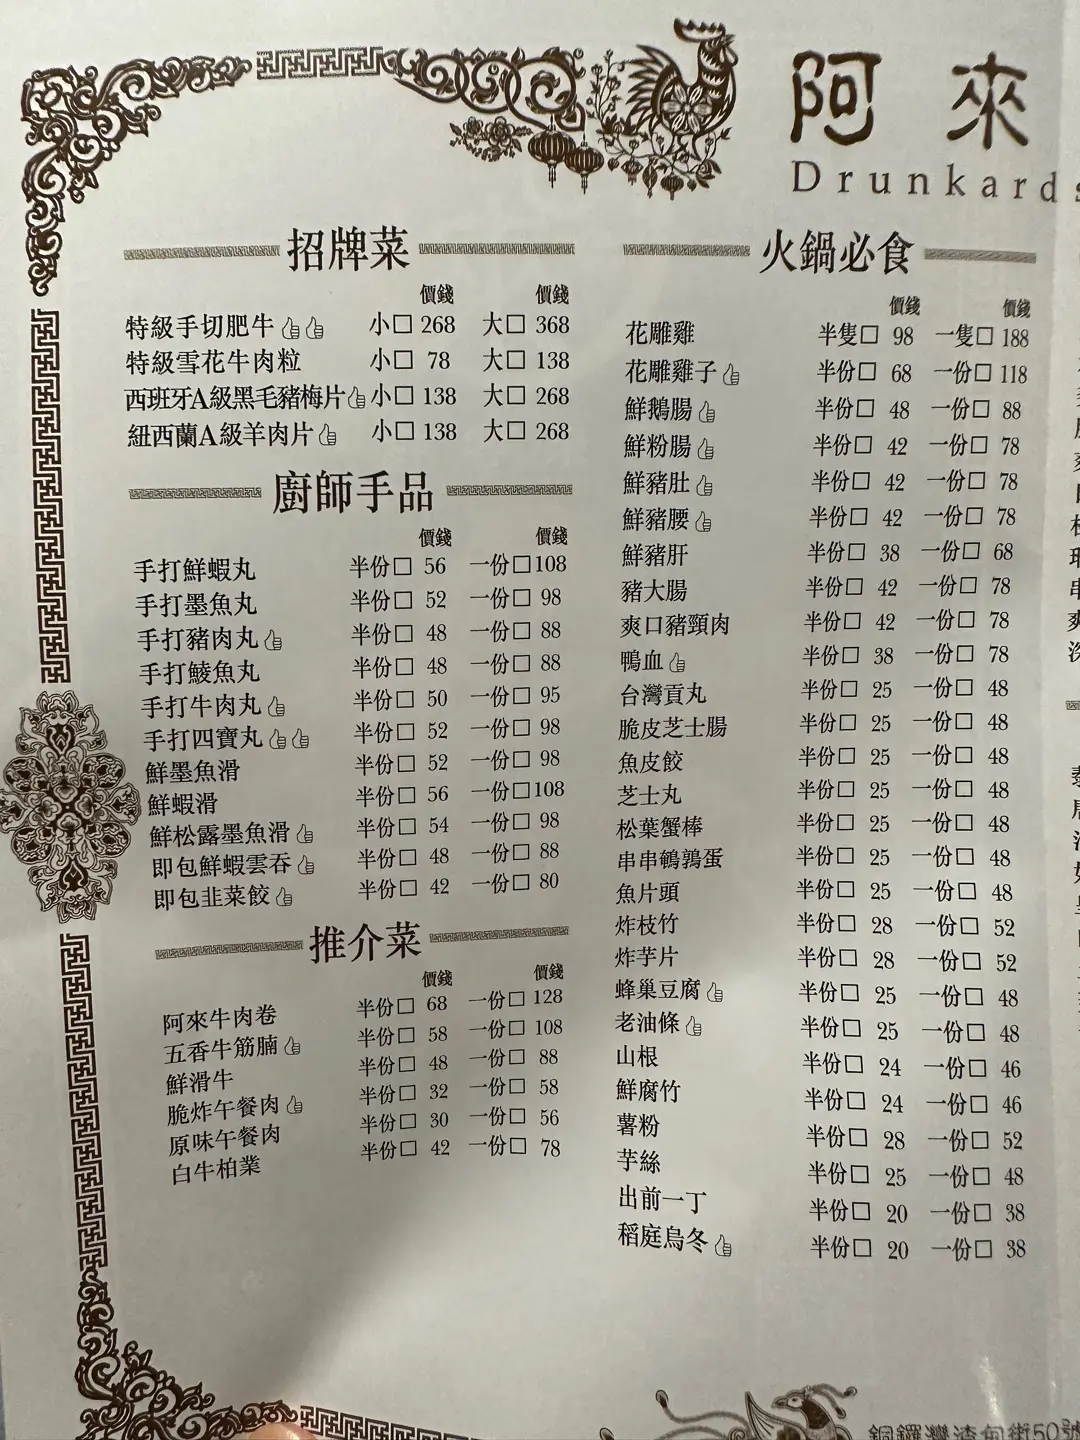 阿來
Drunkards
招牌菜
價錢 價錢
特級手切肥牛 小□ 268 大□ 368
特級雪花牛肉粒 小□ 78 大□ 138
西班牙A級黑毛豬梅片 小□ 138 大□ 268
紐西蘭A級羊肉片 小□ 138 大□ 268
廚師手品
價錢 價錢
手打鮮蝦丸 半份□ 56 一份□ 108
手打墨魚丸 半份□ 52 一份□ 98
手打豬肉丸 半份□ 48 一份□ 88
手打鯪魚丸 半份□ 48 一份□ 88
手打牛肉丸 半份□ 50 一份□ 95
手打四寶丸 半份□ 52 一份□ 98
鮮墨魚滑 半份□ 52 一份□ 98
鮮蝦滑 半份□ 56 一份□ 108
鮮松露墨魚滑 半份□ 54 一份□ 98
即包鮮蝦雲吞 半份□ 48 一份□ 88
即包韭菜餃 半份□ 42 一份□ 80
推介菜
價錢 價錢
阿來牛肉卷 半份□ 68 一份□ 128
五香牛筋腩 半份□ 58 一份□ 108
鮮滑牛 半份□ 48 一份□ 88
脆炸午餐肉 半份□ 32 一份□ 58
原味午餐肉 半份□ 30 一份□ 56
白牛柏業 半份□ 42 一份□ 78
火鍋必食
價錢 價錢
花雕雞 半隻□ 98 一隻□ 188
花雕雞子 半份□ 68 一份□ 118
鮮鵝腸 半份□ 48 一份□ 88
鮮粉腸 半份□ 42 一份□ 78
鮮豬肚 半份□ 42 一份□ 78
鮮豬腰 半份□ 42 一份□ 78
鮮豬肝 半份□ 38 一份□ 68
豬大腸 半份□ 42 一份□ 78
爽口豬頸肉 半份□ 42 一份□ 78
鴨血 半份□ 38 一份□ 78
台灣貢丸 半份□ 25 一份□ 48
脆皮芝士腸 半份□ 25 一份□ 48
魚皮餃 半份□ 25 一份□ 48
芝士丸 半份□ 25 一份□ 48
松葉蟹棒 半份□ 25 一份□ 48
串串鵪鶉蛋 半份□ 25 一份□ 48
魚片頭 半份□ 25 一份□ 48
炸枝竹 半份□ 28 一份□ 52
炸芋片 半份□ 28 一份□ 52
蜂巢豆腐 半份□ 25 一份□ 48
老油條 半份□ 25 一份□ 48
山根 半份□ 24 一份□ 46
鮮腐竹 半份□ 24 一份□ 46
薯粉 半份□ 28 一份□ 52
芋絲 半份□ 25 一份□ 48
出前一丁 半份□ 20 一份□ 38
稻庭烏冬 半份□ 20 一份□ 38
銅鑼灣渣甸街50號